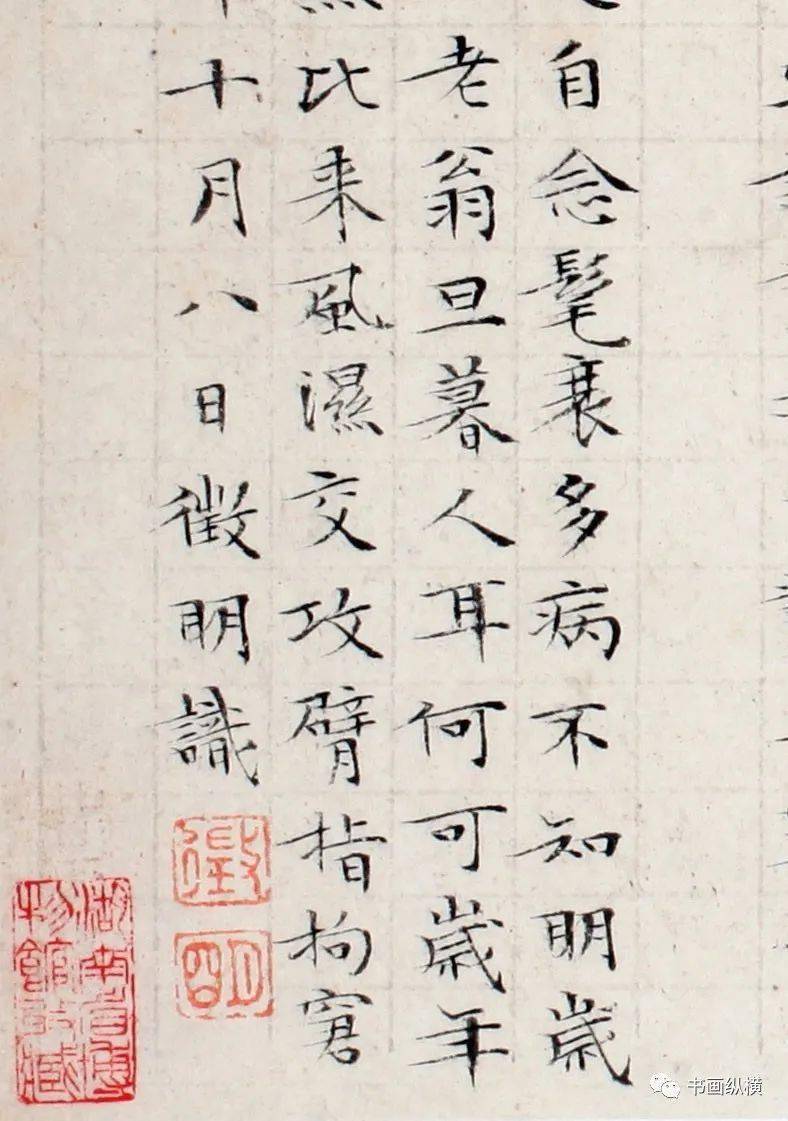 自念髦衰多病不知明歲
老翁旦暮人耳何可歲年
比来風濕交攻臂指拘窘
十月八日徵明識
徵
明
湖南省博
物館收藏
书画纵横